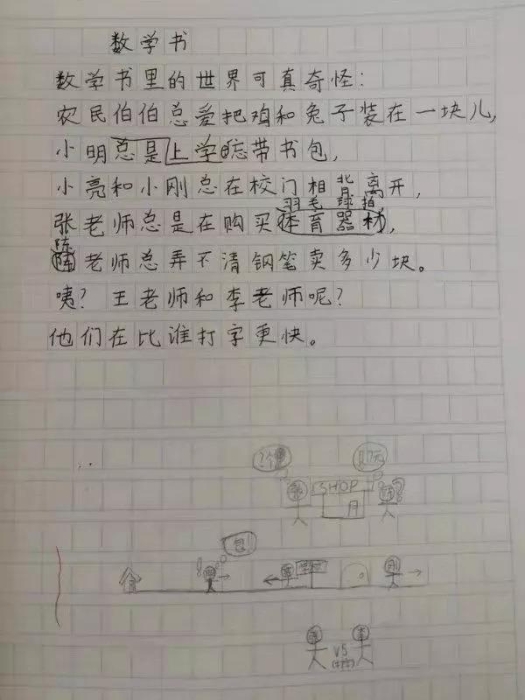 数学书
数学书里的世界可真奇怪:
农民伯伯总爱把鸡和兔子装在一块儿,
小明总是上学忘带书包,
小亮和小刚总在校门相背离开,
羽毛球拍
张老师总是在购买体育器材,
陈
老师总弄不清钢笔卖多少块。
咦?王老师和李老师呢?
他们在比谁打字更快。
SHOP
VS